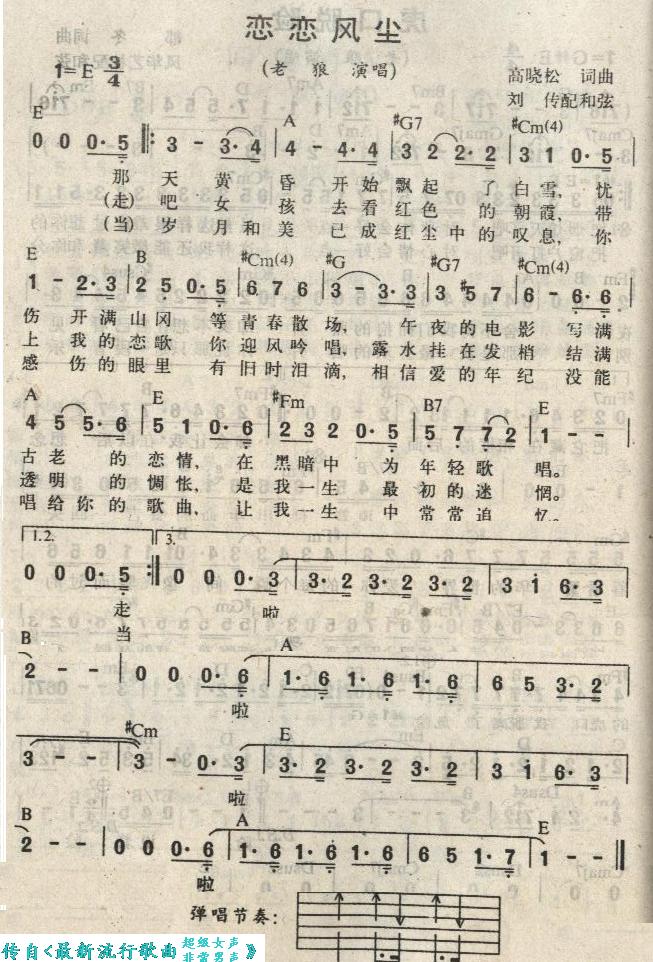 恋恋风尘
1=E 3/4
(老 狼 演唱)
高晓松 词曲
刘 传配和弦
E A #G7 #Cm(4)
0 0 0·5 ‖: 3 - 3·4 | 4 - 4·4 | 3 2 2·2 | 3 1 0·5 |
那 天 黄 昏 开 始 飘 起 了 白 雪, 忧
(走) 吧 女 孩 去 看 红 色 的 朝 霞, 带
(当) 岁 月 和 美 已 成 红 尘 中 的 叹 息, 你
B #Cm(4) #G #G7 #Cm(4)
1 - 2·3 | 2 5 0·5 | 6 7 6 | 3 - 3·3 | 3 #5 7 | 6 - 6·6 |
伤 开 满 山 冈 等 青 春 散 场, 午 夜 的 电 影 写 满
上 我 的 恋 歌 你 迎 风 吟 唱, 露 水 挂 在 发 梢 结 满
感 伤 的 眼 里 有 旧 时 泪 滴, 相 信 爱 的 年 纪 没 能
A E #Fm B7 E
4 5 5·6 | 5 1 0·6 | 2 3 2 0·5 | 5· 7 7 2 | 1 - - |
古 老 的 恋 情, 在 黑 暗 中 为 年 轻 歌 唱。
透 明 的 惆 怅, 是 我 一 生 最 初 的 迷 惘。
唱 给 你 的 歌 曲, 让 我 一 生 中 常 常 追 忆。
1.2. 3.
0 0 0·5 :‖ 0 0 0·3 | 3·2 3·2 3·2 | 3 1 6·3 |
走 啦
当
B A
2 - - | 0 0 0·6 | 1·6 1·6 1·6 | 6 5 3·2 |
啦
#Cm E
3 - - | 3 - 0·3 | 3·2 3·2 3·2 | 3 1 6·3 |
啦
B A E
2 - - | 0 0 0·6 | 1·6 1·6 1·6 | 6 5 1·7 | 1 - - ‖
啦
弹唱节奏:
传自<最新流行歌曲 超级女声 非常男声 》